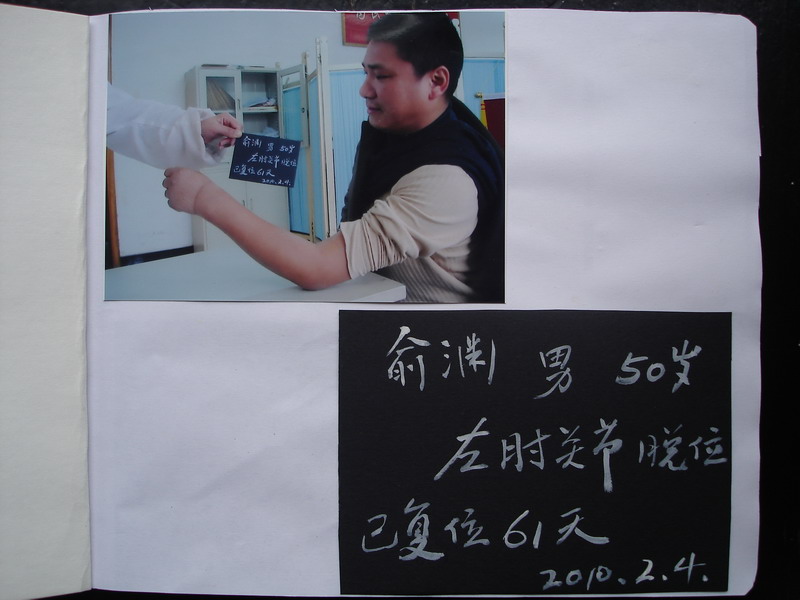 俞渊 男 50岁
左肘关节脱位
已复位61天
2010.2.4.
俞渊 男 50岁
左肘关节脱位
已复位61天
2010.2.4.